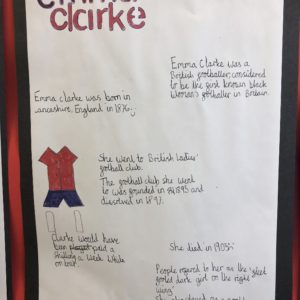 emma
clarke
Emma Clarke was a
British footballer considered
to be the first known black
woman's footballer in Britain.
Emma Clarke was born in
Lancashire, England in 1876.
She went to British Ladies'
football club.
The football club she went
to was founded in 1895 and
dissolved in 1897.
Clarke would have
been paid a
shilling a week while
on tour.
She died in
People refered to her as the 'fleet
footed dark girl on the right
wing'
She also played as a